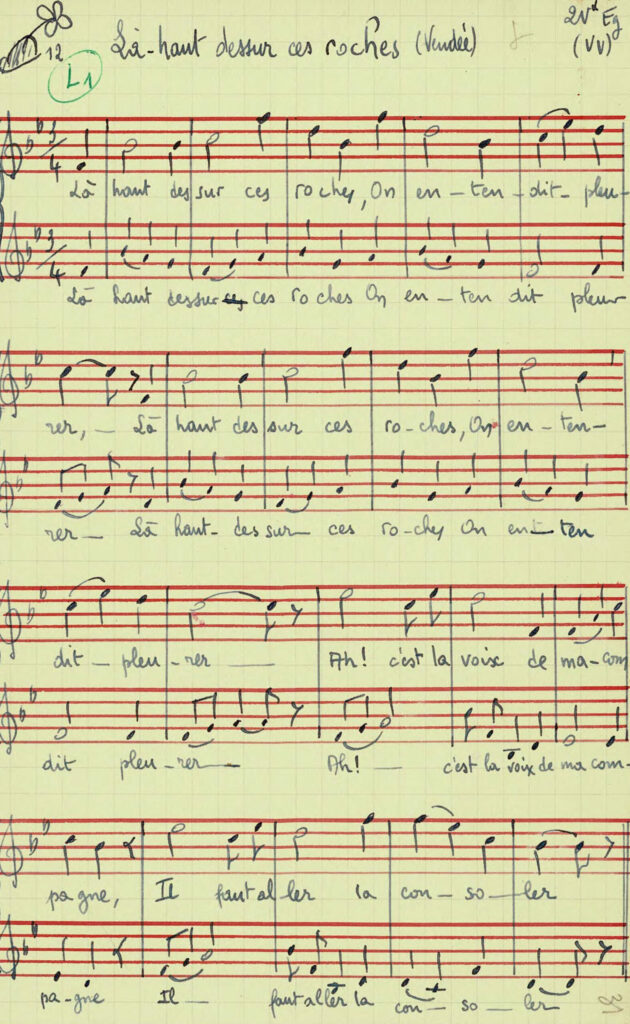 12 Là-haut dessur ces roches (Vendée)
2Vx Eg
(VV)
L1
3/4 Là haut des sur ces roches, On en-ten-dit-pleu-
3/4 Là haut dessur ces ro ches On en-ten dit pleur
rer, - Là haut des sur ces ro-ches, On en-ten-
rer - Là haut-des sur - ces ro-ches On en - ten
dit - pleu-rer Ah! c'est la voix de ma-com
dit pleu-rer Ah! - c'est la voix de ma com-
pagne, Il faut al ler la con-so-ler
pa-gne Il - faut aller la con-so-ler
31